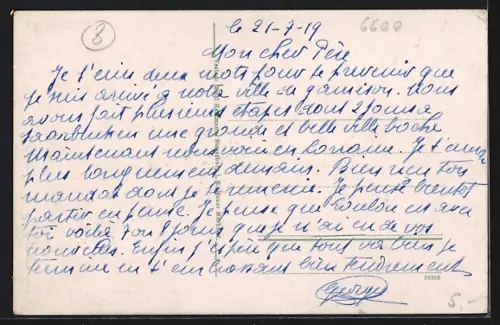 8
6600
le 21-7-19
Mon cher Père
Je t'écris deux mots pour te prévenir que
je suis arrivé à notre ville de garnison. Nous
avons fait plusieurs étapes dont 2 jours à
Saarbrucken une grande et belle ville boche
Maintenant nous voici en Lorraine. Je t'écrirai
plus longuement demain. Bien reçu ton
mandat dont je te remercie. Je pense bientôt
partir en perme. Je pense que est avec
toi voilà 8 jours que je n'ai eu de vos
nouvelles. Enfin j'espère que tout va bien je
termine en t'embrassant bien tendrement
Georges
5.-